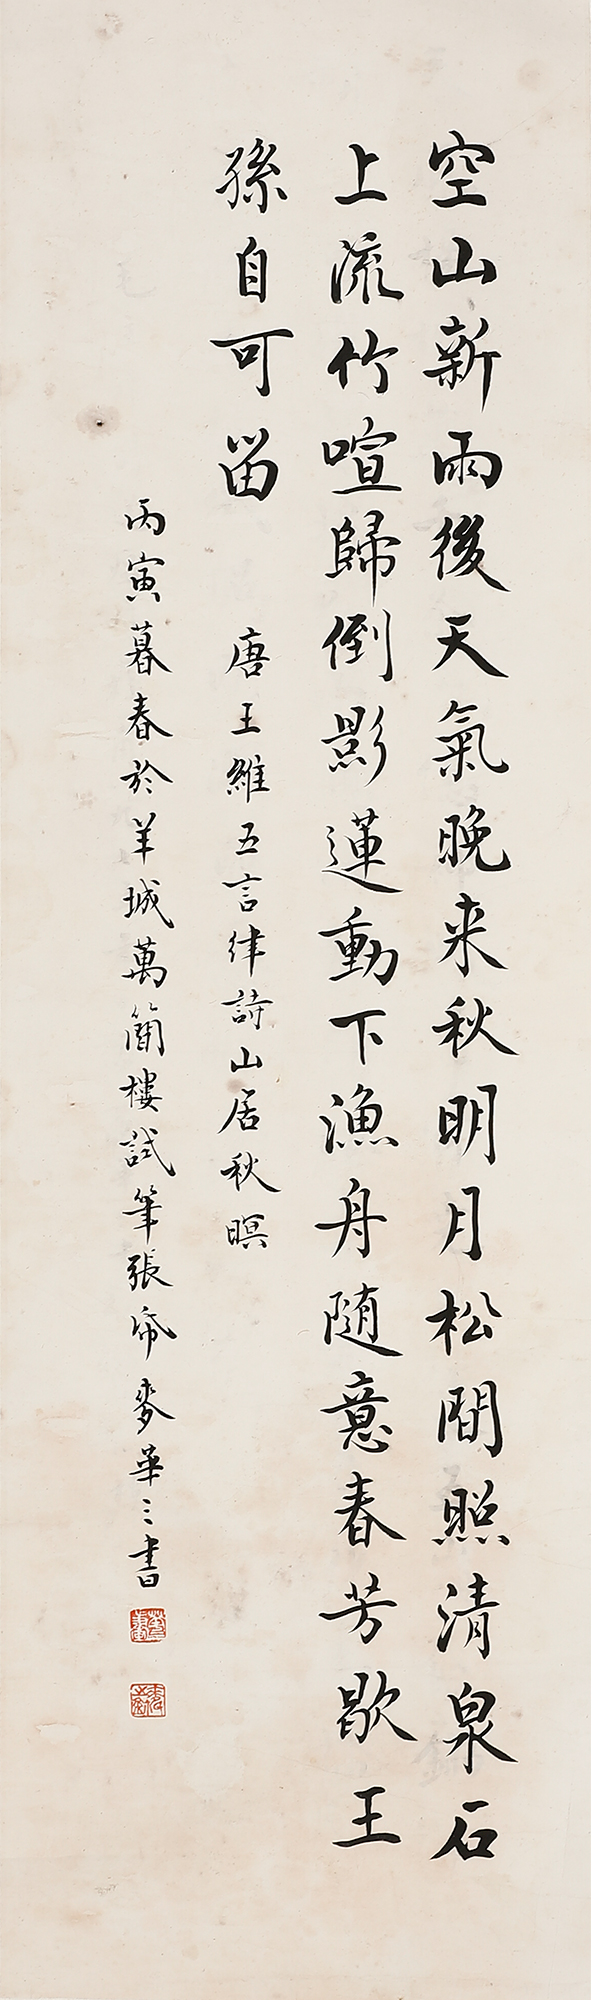 空山新雨後天氣晚来秋明月松間照清泉石
上流竹喧歸倒影蓮動下漁舟随意春芳歇王
孫自可留
唐王維五言律詩山居秋暝
丙寅暮春於羊城萬簡樓試筆張帋麥華三書